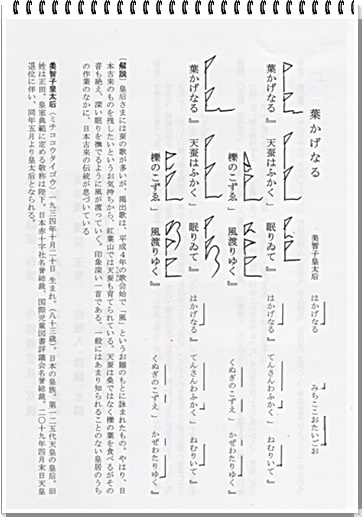 葉かげなる　美智子皇太后　はかげなる　みちこおたいごお
葉かげなる』　天蚕はふかく」　眠りゐて』　はかげなる」　てんさんわふかく」　ねむりいて』
櫟のこずゑ」　風渡りゆく』　くぬぎのこずえ」　かぜわたりゆく』
葉かげなる』　天蚕はふかく」　眠りゐて』　はかげなる」　てんさんわふかく」　ねむりいて』
櫟のこずゑ」　風渡りゆく』　くぬぎのこずえ」　かぜわたりゆく』
〔解説〕皇后さまには蚕の歌が多いが、掲出歌は、平成４年の歌会始で「風」というお題のもとに詠まれたもの。やはり、日
本古来のものを残したいというお気持ちから、紅葉山では天蚕も育てられている。天蚕は桑ではなく櫟の葉を食べるがその
音も絶え、深い眠りを撫でるように風が渡っていく。印象深い一首である。一般にはあまり知られることのない皇居のうち
の作業のなかに、日本古来の伝統が息づいている
美智子皇太后（ミチココウタイゴウ）一九三四年十月二十日 生まれ。（八十三歳）。日本の皇族。第一二五代天皇の皇后。旧
姓は正田。皇室典範に定める敬称は陛下。日本赤十字社名誉総裁、国際児童図書評議会名誉総裁。二〇一九年四月末日天皇
退位に伴い、同年五月より皇太后となられる。